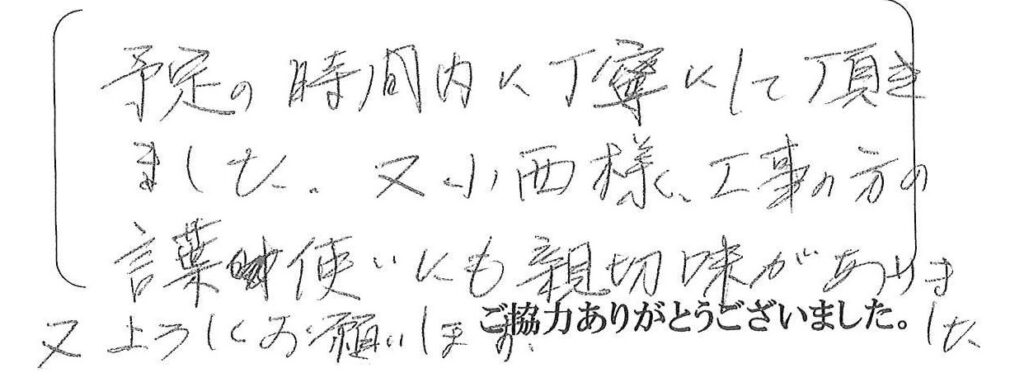 予定の時間内に丁寧にして頂き
ました。又小西様、工事の方の
言葉使いにも親切味がありま
した
又よろしくお願いします。
ご協力ありがとうございました。